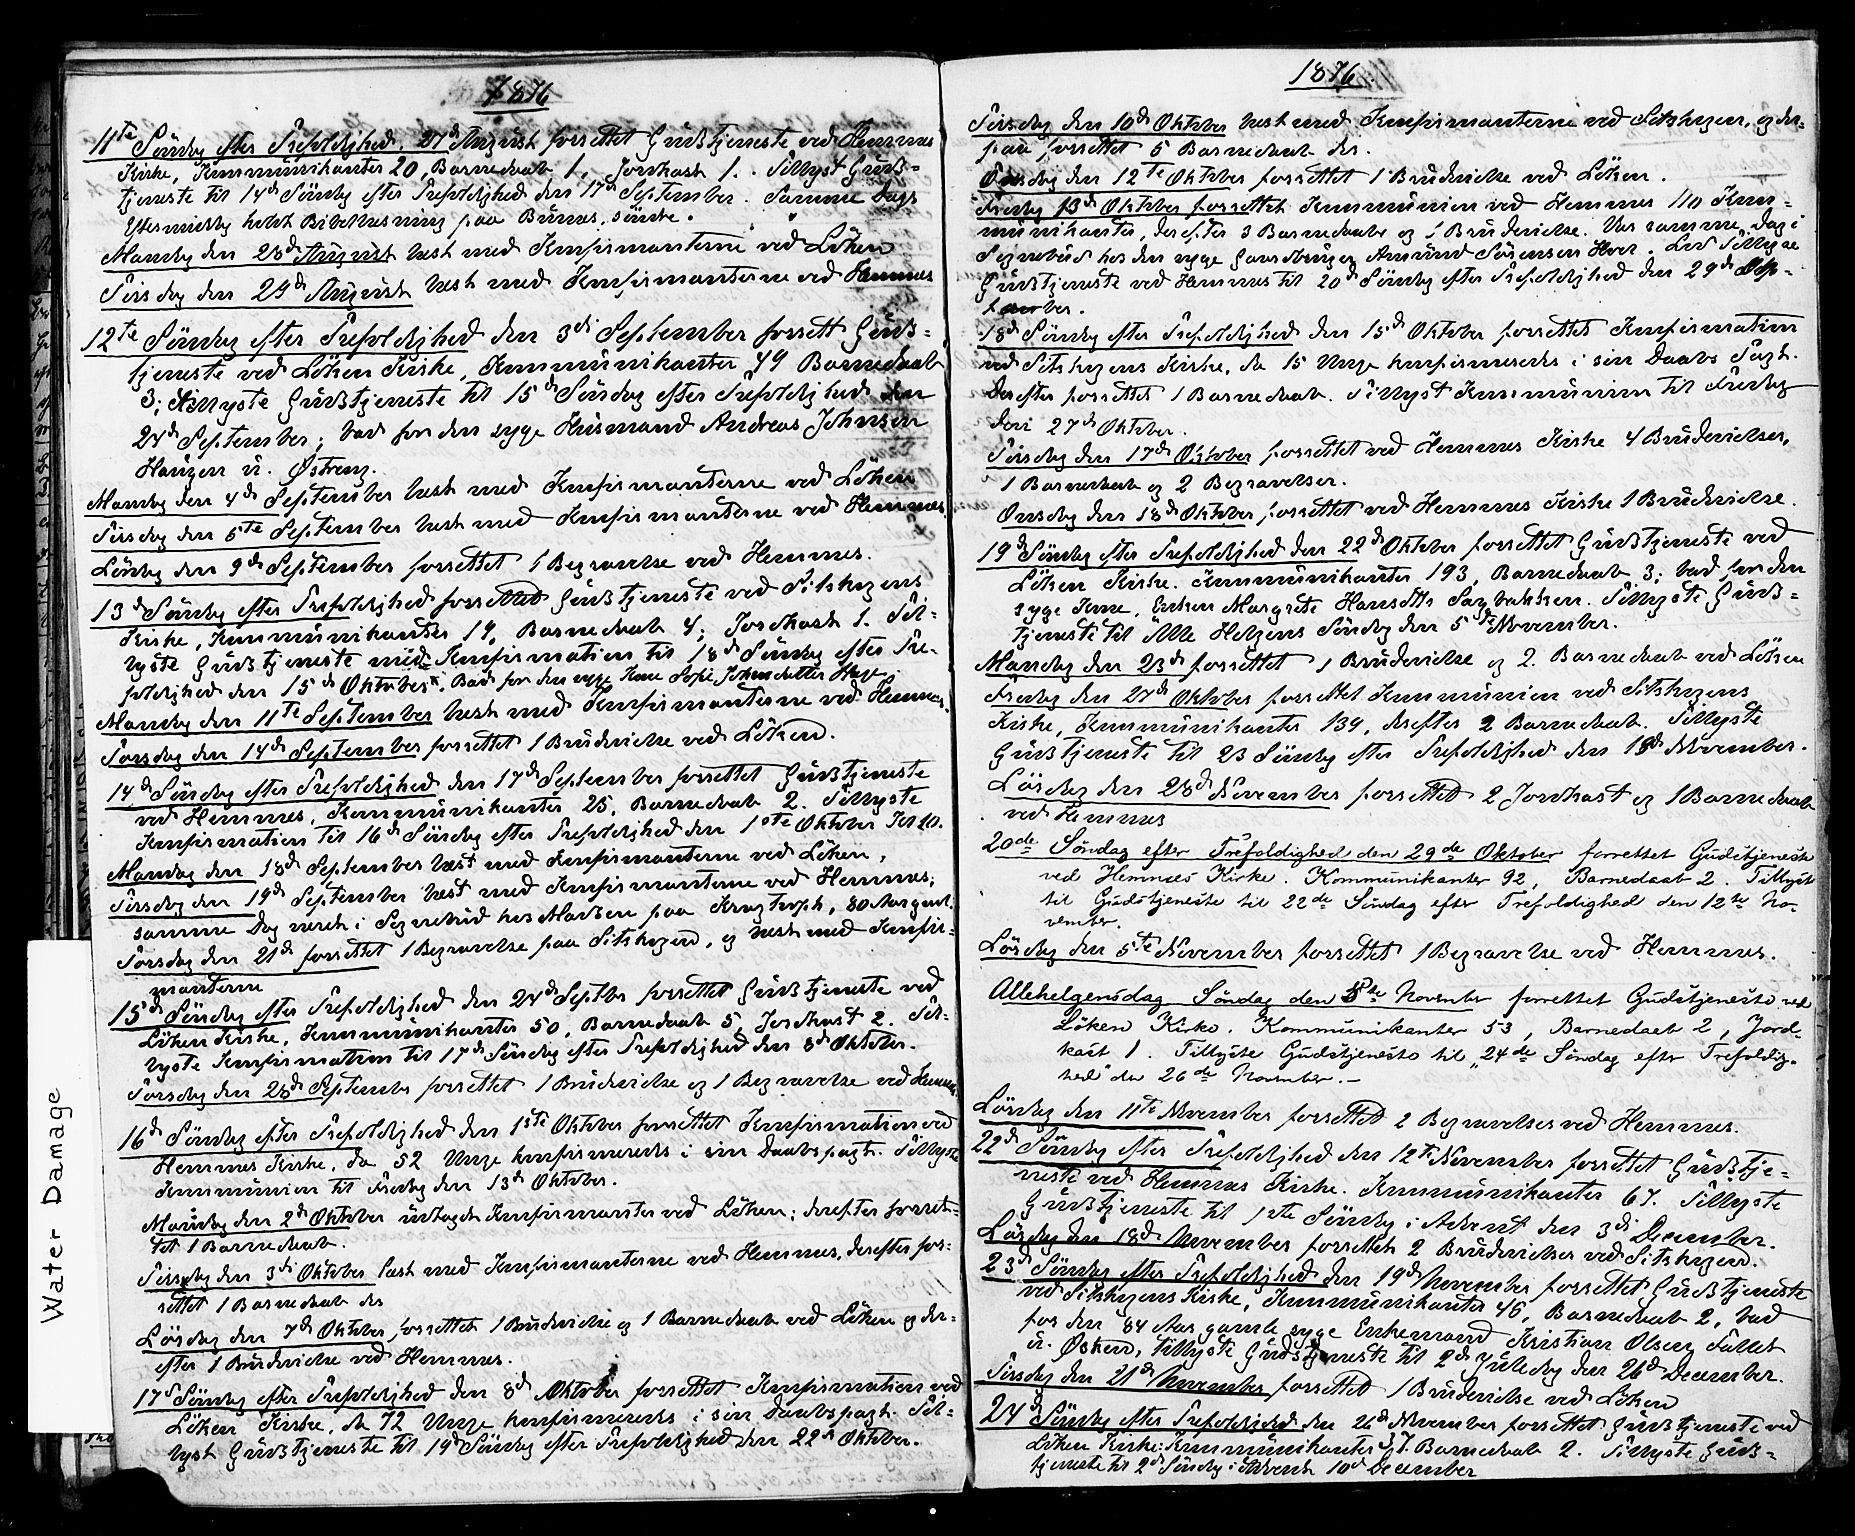 1876
11te Söndag efter Trefoldighed, 27d August forrettet Gudstjeneste ved Hemnes
Kirke, Kommunikanter 20, Barnedaab 1, Jordkast 1. Tillyst Guds-
tjeneste til 14d Söndag efter Trefoldighed den 17d September. Samme Dags
Eftermiddag holdt Bibellæsning paa Bunes, söndre.
Mandag den 28d August læst med Konfirmanterne ved Löken
Tirsdag den 29d August læst med Konfirmanterne ved Hemnes
12te Söndag efter Trefoldighed den 3di September forrett Guds-
tjeneste ved Löken Kirke, Kommunikanter 49 Barnedaab
3; tillyste Gudstjeneste til 15d Söndag efter Trefoldighed den
24d September; bad for den syge Husmand Andreas Johnsen
Haugen u. Østreng.
Mandag den 4d September læst med Konfirmanterne ved Löken
Tirsdag den 5te September læst med Konfirmanterne ved Hemnes
Lördag den 9d September forrettet 1 Begravelse ved Hemnes.
13d Söndag efter Trefoldighed forrettet Gudstjeneste ved Sitskogens
Kirke, Kommunikanter 19, Barnedaab 4; Jordkast 1. Til-
lyste Gudstjeneste med Konfirmation til 18d Söndag efter Tre-
foldighed den 15d Oktober. Bad for den syge Kone Sofie
Mandag den 11te September læst med Konfirmanterne ved Hemnes.
Torsdag den 14d September forrettet 1 Brudevielse ved Löken.
14d Söndag efter Trefoldighed den 17d September forrettet Gudstjeneste
ved Hemnes, Kommunikanter 25, Barnedaab 2. Tillyste
Konfirmation til 16d Söndag efter Trefoldighed den 1ste Oktober Kl 10.
Mandag den 18d September læst med Konfirmanterne ved Löken,
Tirsdag den 19d September læst med Konfirmanterne ved Hemnes;
samme Dag været i Sognebud hos Madsen paa 80 Aar gml.
Torsdag den 21d forrettet 1 Begravelse paa Sitskogen, og læst med Konfir-
manterne
15d Söndag efter Trefoldighed den 24d Septbr forrettet Gudstjeneste ved
Löken Kirke, Kommunikanter 50, Barnedaab 5, Jordkast 2. Til-
lyste Konfirmation til 17d Söndag efter Trefoldighed den 8d Oktober.
Torsdag den 28d September forrettet 1 Brudevielse og 1 Begravelse ved Hemnes
16d Söndag efter Trefoldighed den 1ste Oktober forrettet Konfirmation ved
Hemnes Kirke, da 52 Unge konfirmeredes i sin Daabspagt. Tillyste
Kommunion til Fredag den 13d Oktober.
Mandag den 2d Oktober udtaget Konfirmanter ved Löken; derefter forret-
tet 1 Barnedaab.
Tirsdag den 3di Oktober læst med Konfirmanterne ved Hemnes, derefter for-
rettet 1 Barnedaab der
Lördag den 7d Oktober forrettet 1 Brudevielse og 1 Barnedaab ved Löken og der-
efter 1 Brudevielse ved Hemnes.
17d Söndag efter Trefoldighed den 8d Oktober forrettet Konfirmation ved
Löken Kirke, da 72 Unge konfirmeredes i sin Daabspagt. Til-
lyst Gudstjeneste til 19d Söndag efter Trefoldighed den 22d Oktober.
Water Damage
1876.
Tirsdag den 10d Oktober læst med Konfirmanterne ved Sitskogen, og der-
paa forrettet 5 Barnedaab der.
Onsdag den 12te Oktober forrettet 1 Brudevielse ved Löken.
Fredag 13d Oktober forrettet Kommunion ved Hemnes 110 Kom-
munikanter, derefter 3 Barnedaab og 1 Brudevielse. Var samme Dag i
Sognebud hos den syge Gaardbruger Amund Sörensen Lod tillyse
Gudstjeneste ved Hemnes til 20d Söndag efter Trefoldighed den 29d Ok-
tober.
18d Söndag efter Trefoldighed den 15d Oktober forrettet Konfirmation
ved Sitskogens Kirke, da 15 Unge konfirmeredes i sin Daabs Pagt.
Derefter forrettet 1 Barnedaab. Tillyst Kommunion til Fredag
den 27d Oktober.
Tirsdag den 17d Oktober forrettet ved Hemnes Kirke 4 Brudevielser,
1 Barnedaab og 2 Begravelser.
Onsdag den 18d Oktober forrettet ved Hemnes Kirke 1 Brudevielse.
19d Söndag efter Trefoldighed den 22d Oktober forrettet Gudstjeneste ved
Löken Kirke. Kommunikanter 193, Barnedaab 3; bad for den
syge Kone, Enken Margrete Hansdtr Sagbakken. Tillyste Guds-
tjeneste til Alle Helgens Söndag den 5te November.
Mandag den 23d forrettet 1 Brudevielse og 2 Barnedaab ved Löken
Fredag den 27d Oktober forrettet Kommunion ved Sitskogens
Kirke, Kommunikanter 139, derefter 2 Barnedaab. Tillyste
Gudstjeneste til 23 Söndag efter Trefoldighed den 19d November.
Lördag den 28d November forrettet 2 Jordkast og 1 Barnedaab
ved Hemnes
20de Söndag efter Trefoldighed den 29de Oktober forrettet Gudstjeneste
ved Hemnæs Kirke. Kommunikanter 92, Barnedaab 2. Tillyst
til Gudstjeneste til 22de Söndag efter Trefoldighed den 12te No-
vember.
Lördag den 5te November forrettet 1 Begravelse ved Hemnes.
Allehelgensdag Söndag den 5te November forrettet Gudstjeneste ved
Löken Kirke. Kommunikanter 53, Barnedaab 2, Jord-
kast 1. Tillyste Gudstjeneste til "24de Söndag efter Trefoldig-
hed" den 26de November.-
Lördag den 11te November forrettet 2 Begravelser ved Hemnes.
22d Söndag efter Trefoldighed den 12te November forrettet Gudstje-
neste ved Hemnes Kirke. Kommunikanter 67. Tillyste
Gudstjeneste til 1ste Söndag i Advent den 3di December.
Lördag den 18d November forrettet 2 Brudevielser ved Sitskogen.
23d Söndag efter Trefoldighed den 19d November forrettet Gudstjeneste
ved Sitskogens Kirke, Kommunikanter 46, Barnedaab 2, bad
for den 84 Aar gamle syge Enkemand Kristian Olsen Fallet
u. Økern, tillyste Gudstjeneste til 2d Juledag den 26d December.
Tirsdag den 21d November forrettet 1 Brudevielse ved Löken
24d Söndag efter Trefoldighed den 26d November forrettet Gudstjeneste ved
Löken Kirke: Kommunikanter 37. Barnedaab 2. Tillyste Guds-
tjeneste til 2d Söndag i Advent 10d December